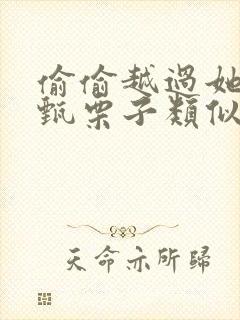 偷偷越過她
甄栗子類似
天命亦所歸